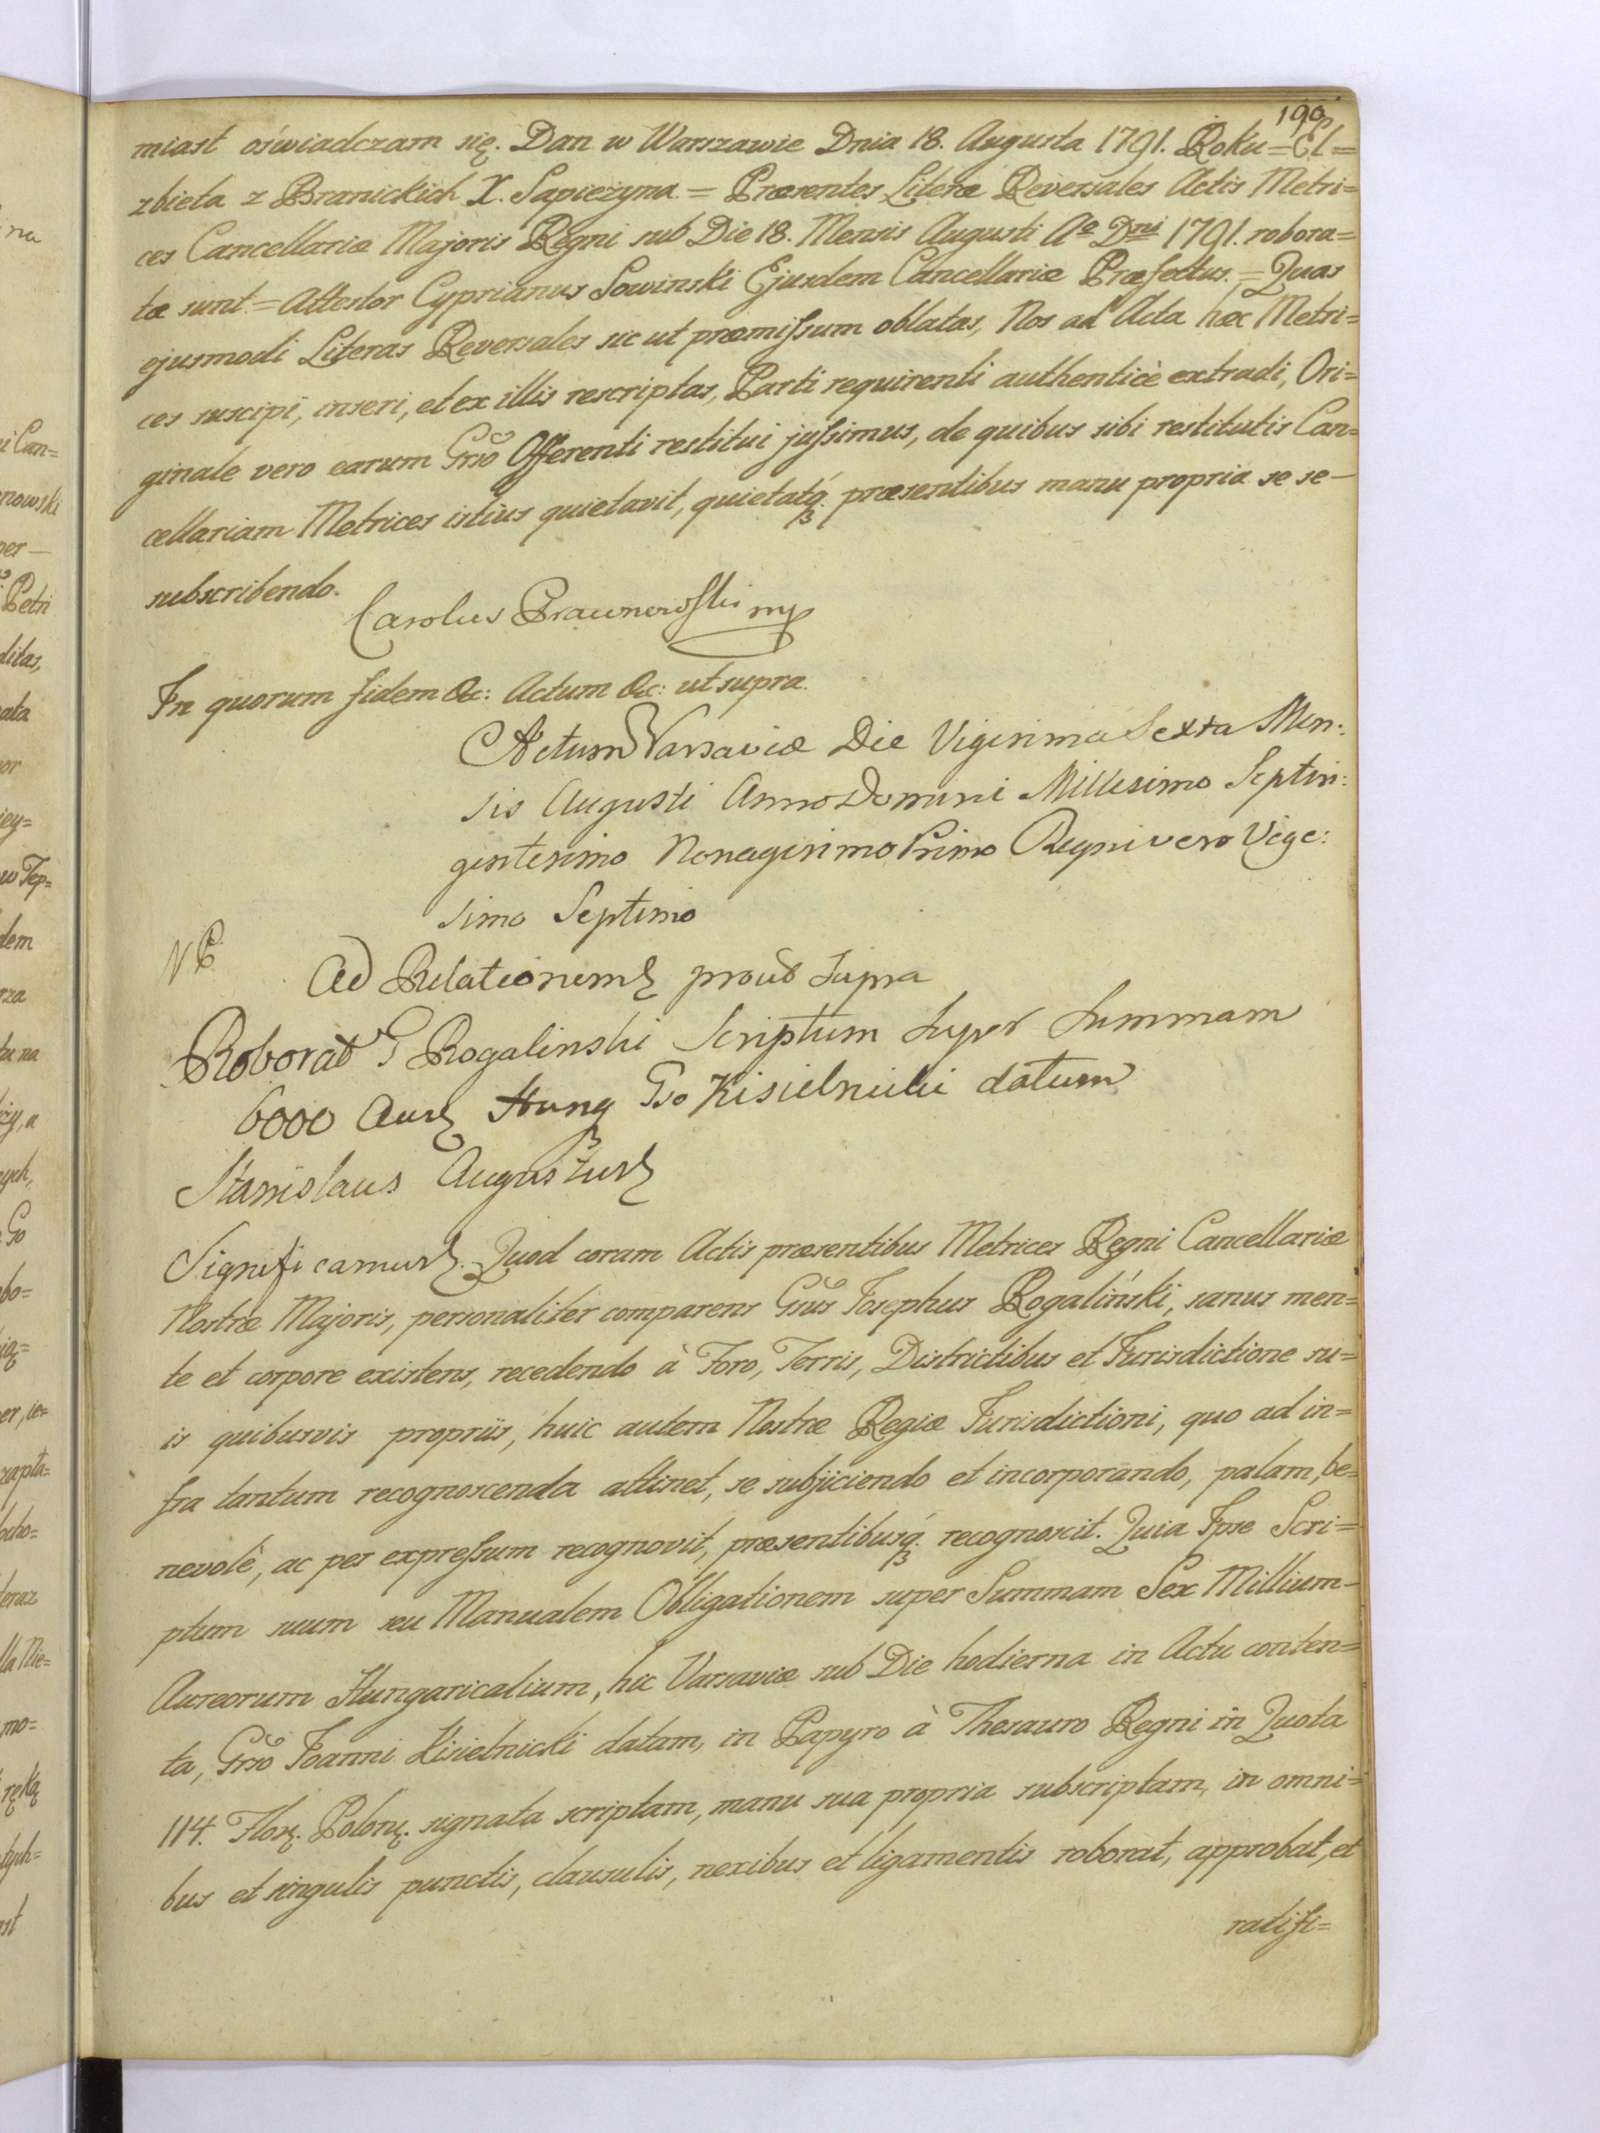 190
miast oświadczam się. Dan w Warszawie Dnia 18. Augusta 1791. Roku = El=
zbieta z Branickich X. Sapieżyna. = Præsentes Literæ Reversales Actis Metri=
ces Cancellariæ Majoris Regni sub Die 18. Mensis Augusti Aº Dni 1791. robora=
tæ sunt. = Attestor Cyprianus Sowinski Ejusdem Cancellariæ Præfectus. = Quas
ejusmodi Literas Reversales sic ut præmissum oblatas, Nos ad Acta hæc Metri=
ces suscipi, inseri, et ex illis rescriptas, Parti requirenti authenticè extradi, Ori=
ginale vero earum Grso Offerenti restitui jussimus, de quibus sibi restitutis Can=
cellariam Metrices istius quietavit, quietatq. præsentibus manu propria se se—
subscribendo.
Carolus mp
In quorum fidem &c: Actum &c: ut supra.
Actum Varsaviæ Die Vigesima Sexta Men:
sis Augusti Anno Domini Millesimo Septin:
gentesimo Nonagesimo Primo Regni vero Vige:
simo Septimo
Ad Relationem prout Supra
Roborat G Rogalinski Scriptum Super Summam
6000 Aur Hung Gso Kisielnicki datum
Stanislaus Augustus
Significamus. Quod coram Actis præsentibus Metrices Regni Cancellariæ
Nostræ Majoris, personaliter comparens Gsus Josephus Rogaliński, sanus men=
te et corpore existens, recedendo à Foro, Terris, Districtibus et Jurisdictione su=
is quibusvis propriis, huic autem Nostræ Regiæ Jurisdictioni, quo ad in=
fra tantum recognoscenda attinet, se subjiciendo et incorporando, palam, be=
nevolè, ac per expressum recognovit, præsentibusq. recognoscit. Quia Ipse Scri=
ptum suum seu Manualem Obligationem super Summam Sex Millium—
Aureorum Hungaricalium, hic Varsaviæ sub Die hodierna in Actu conten=
ta, Grso Joanni Kisielnicki datam, in Papyro à Thesauro Regni in Quota
114. Flor. Polon. signata scriptam, manu sua propria subscriptam, in omni=
bus et singulis punctis, clausulis, nexibus et ligamentis roborat, approbat, et
ratifi=